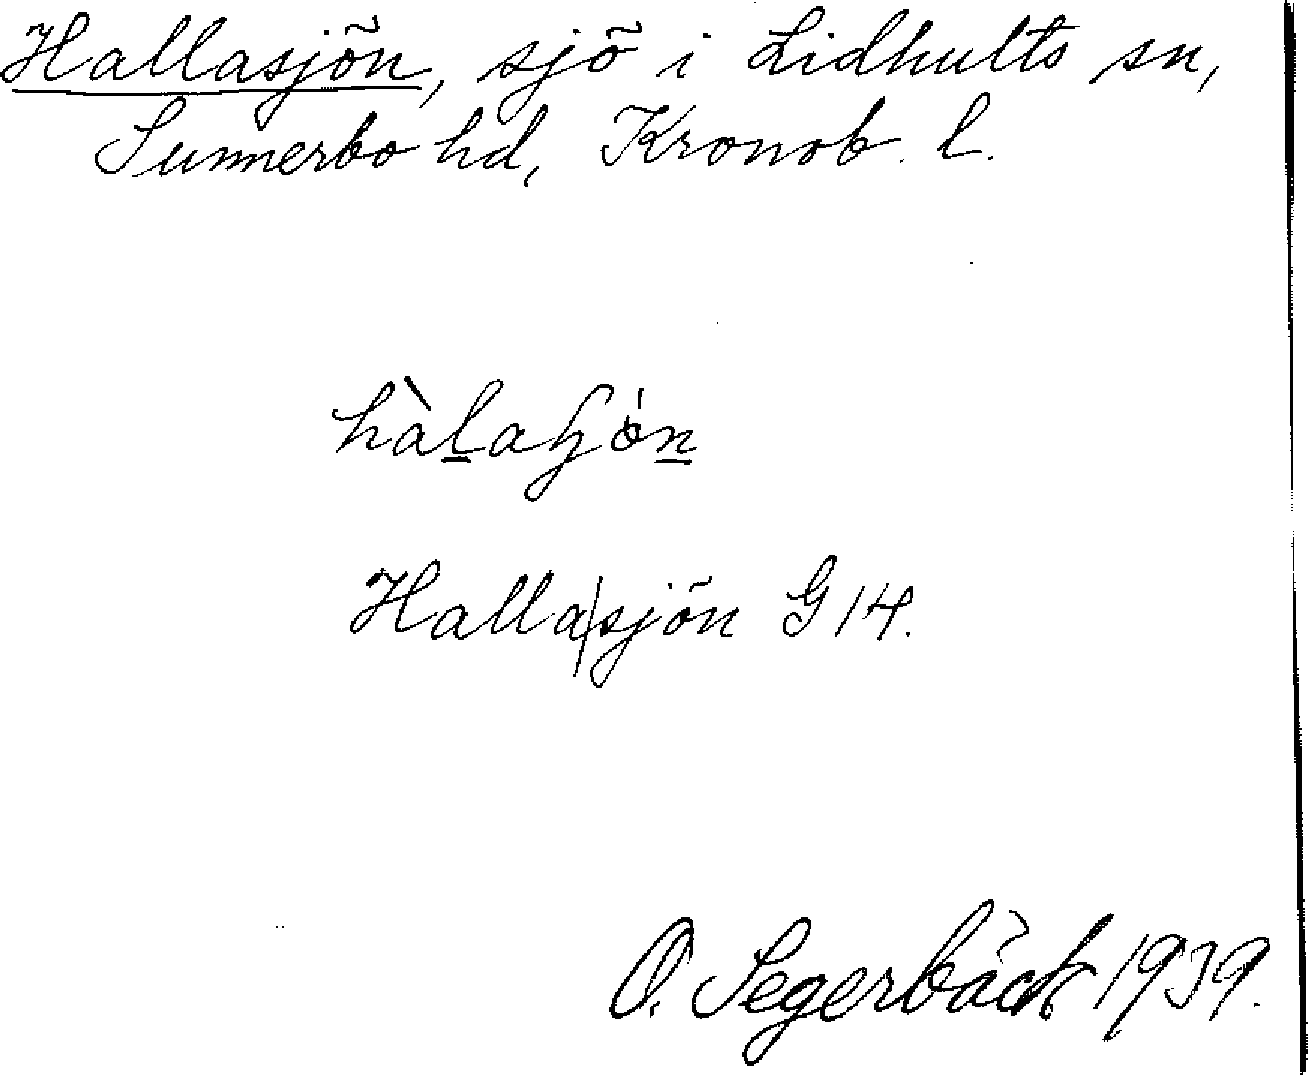 Hallasjön, sjö i Lidhults sn,
Sunnerbo hd, Kronob. l.
Hallasjön G 14.
O. Segerbäck 1939.